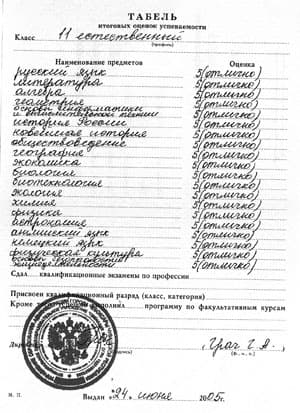 ТАБЕЛЬ
итоговых оценок успеваемости
Класс 11 естественный
(профиль)
Наименование предметов Оценка
русский язык 5(отлично)
литература 5(отлично)
алгебра 5(отлично)
геометрия 5(отлично)
основы информатики
и вычислительной техники 5(отлично)
история России 5(отлично)
новейшая история 5(отлично)
обществоведение 5(отлично)
география 5(отлично)
экономика 5(отлично)
биология 5(отлично)
биотехнология 5(отлично)
экология 5(отлично)
химия 5(отлично)
физика 5(отлично)
астрономия 5(отлично)
английский язык 5(отлично)
немецкий язык 5(отлично)
физическая культура 5(отлично)
основы безопасности
жизнедеятельности 5(отлично)
Сдал квалификационные экзамены по профессии
Присвоен квалификационный разряд (класс, категория)
Кроме того, выполнил программу по факультативным курсам
Грач Г.А.
(ф., и., о.)
М. П. Выдан "24" июня 2005г.